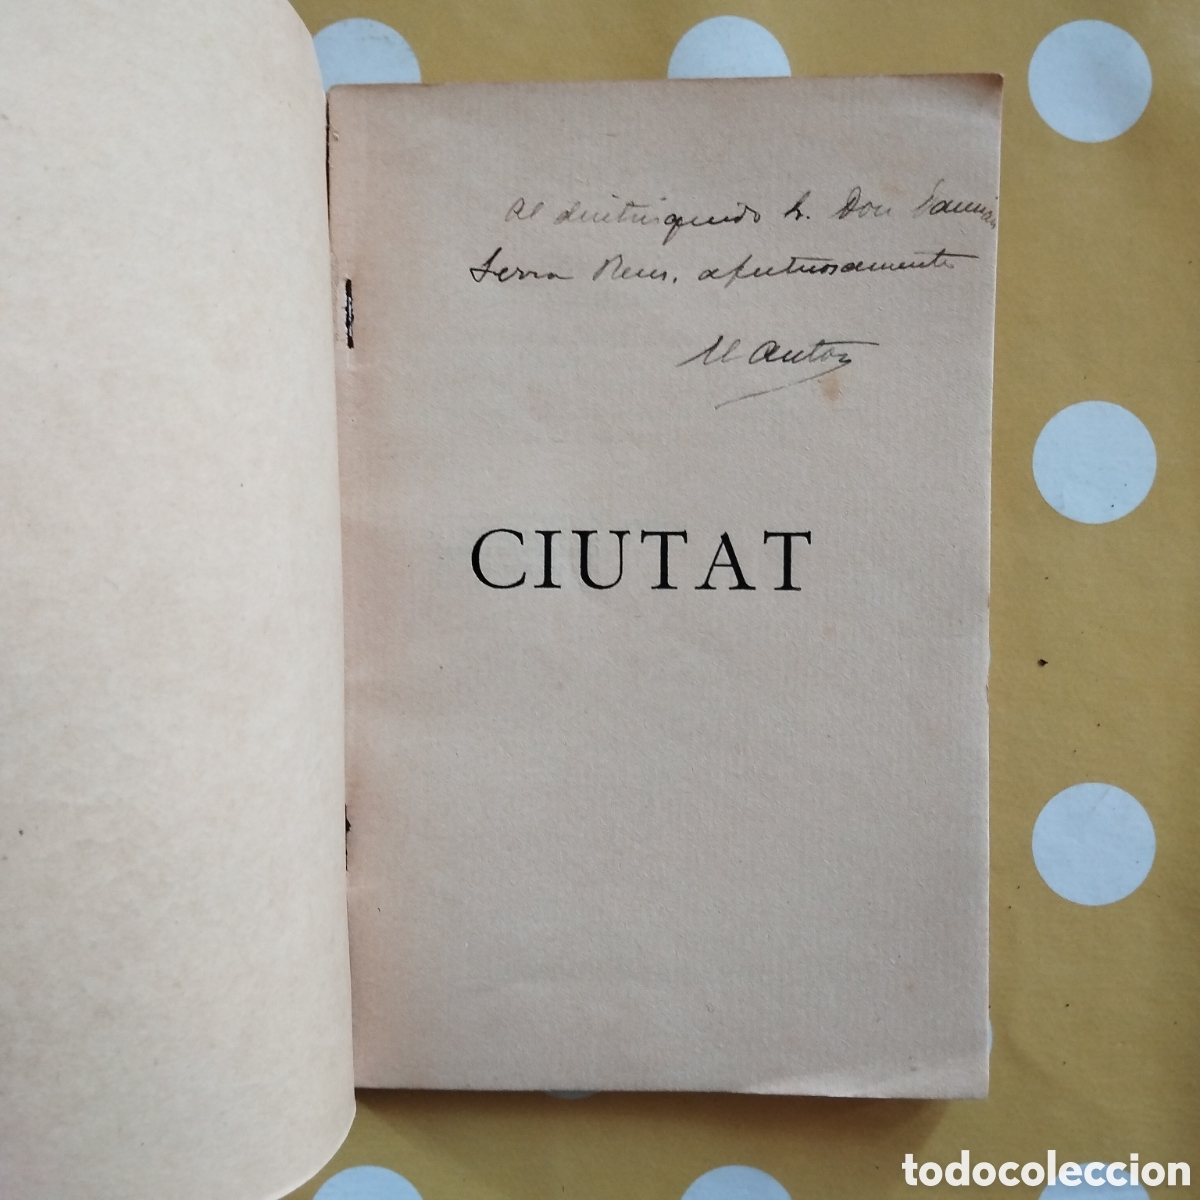 Al distinguido Sr. Don Damián
Serra Reus, afectuosamente
El autor
CIUTAT
todocoleccion